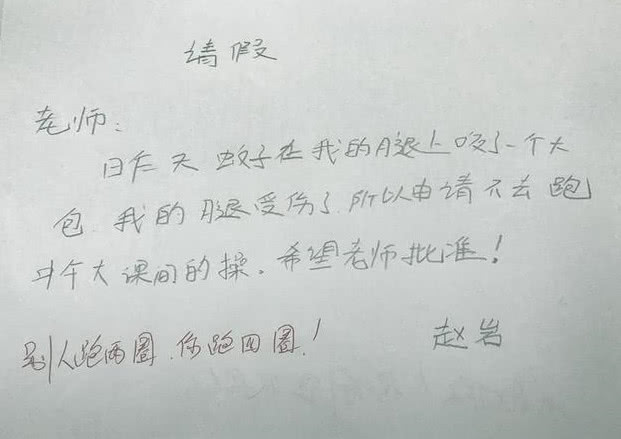 请假
老师:
昨天蚊子在我的腿上咬了一个大
包.我的腿受伤了.所以申请不去跑
上午大课间的操.希望老师批准!
别人跑两圈.你跑四圈!
赵岩